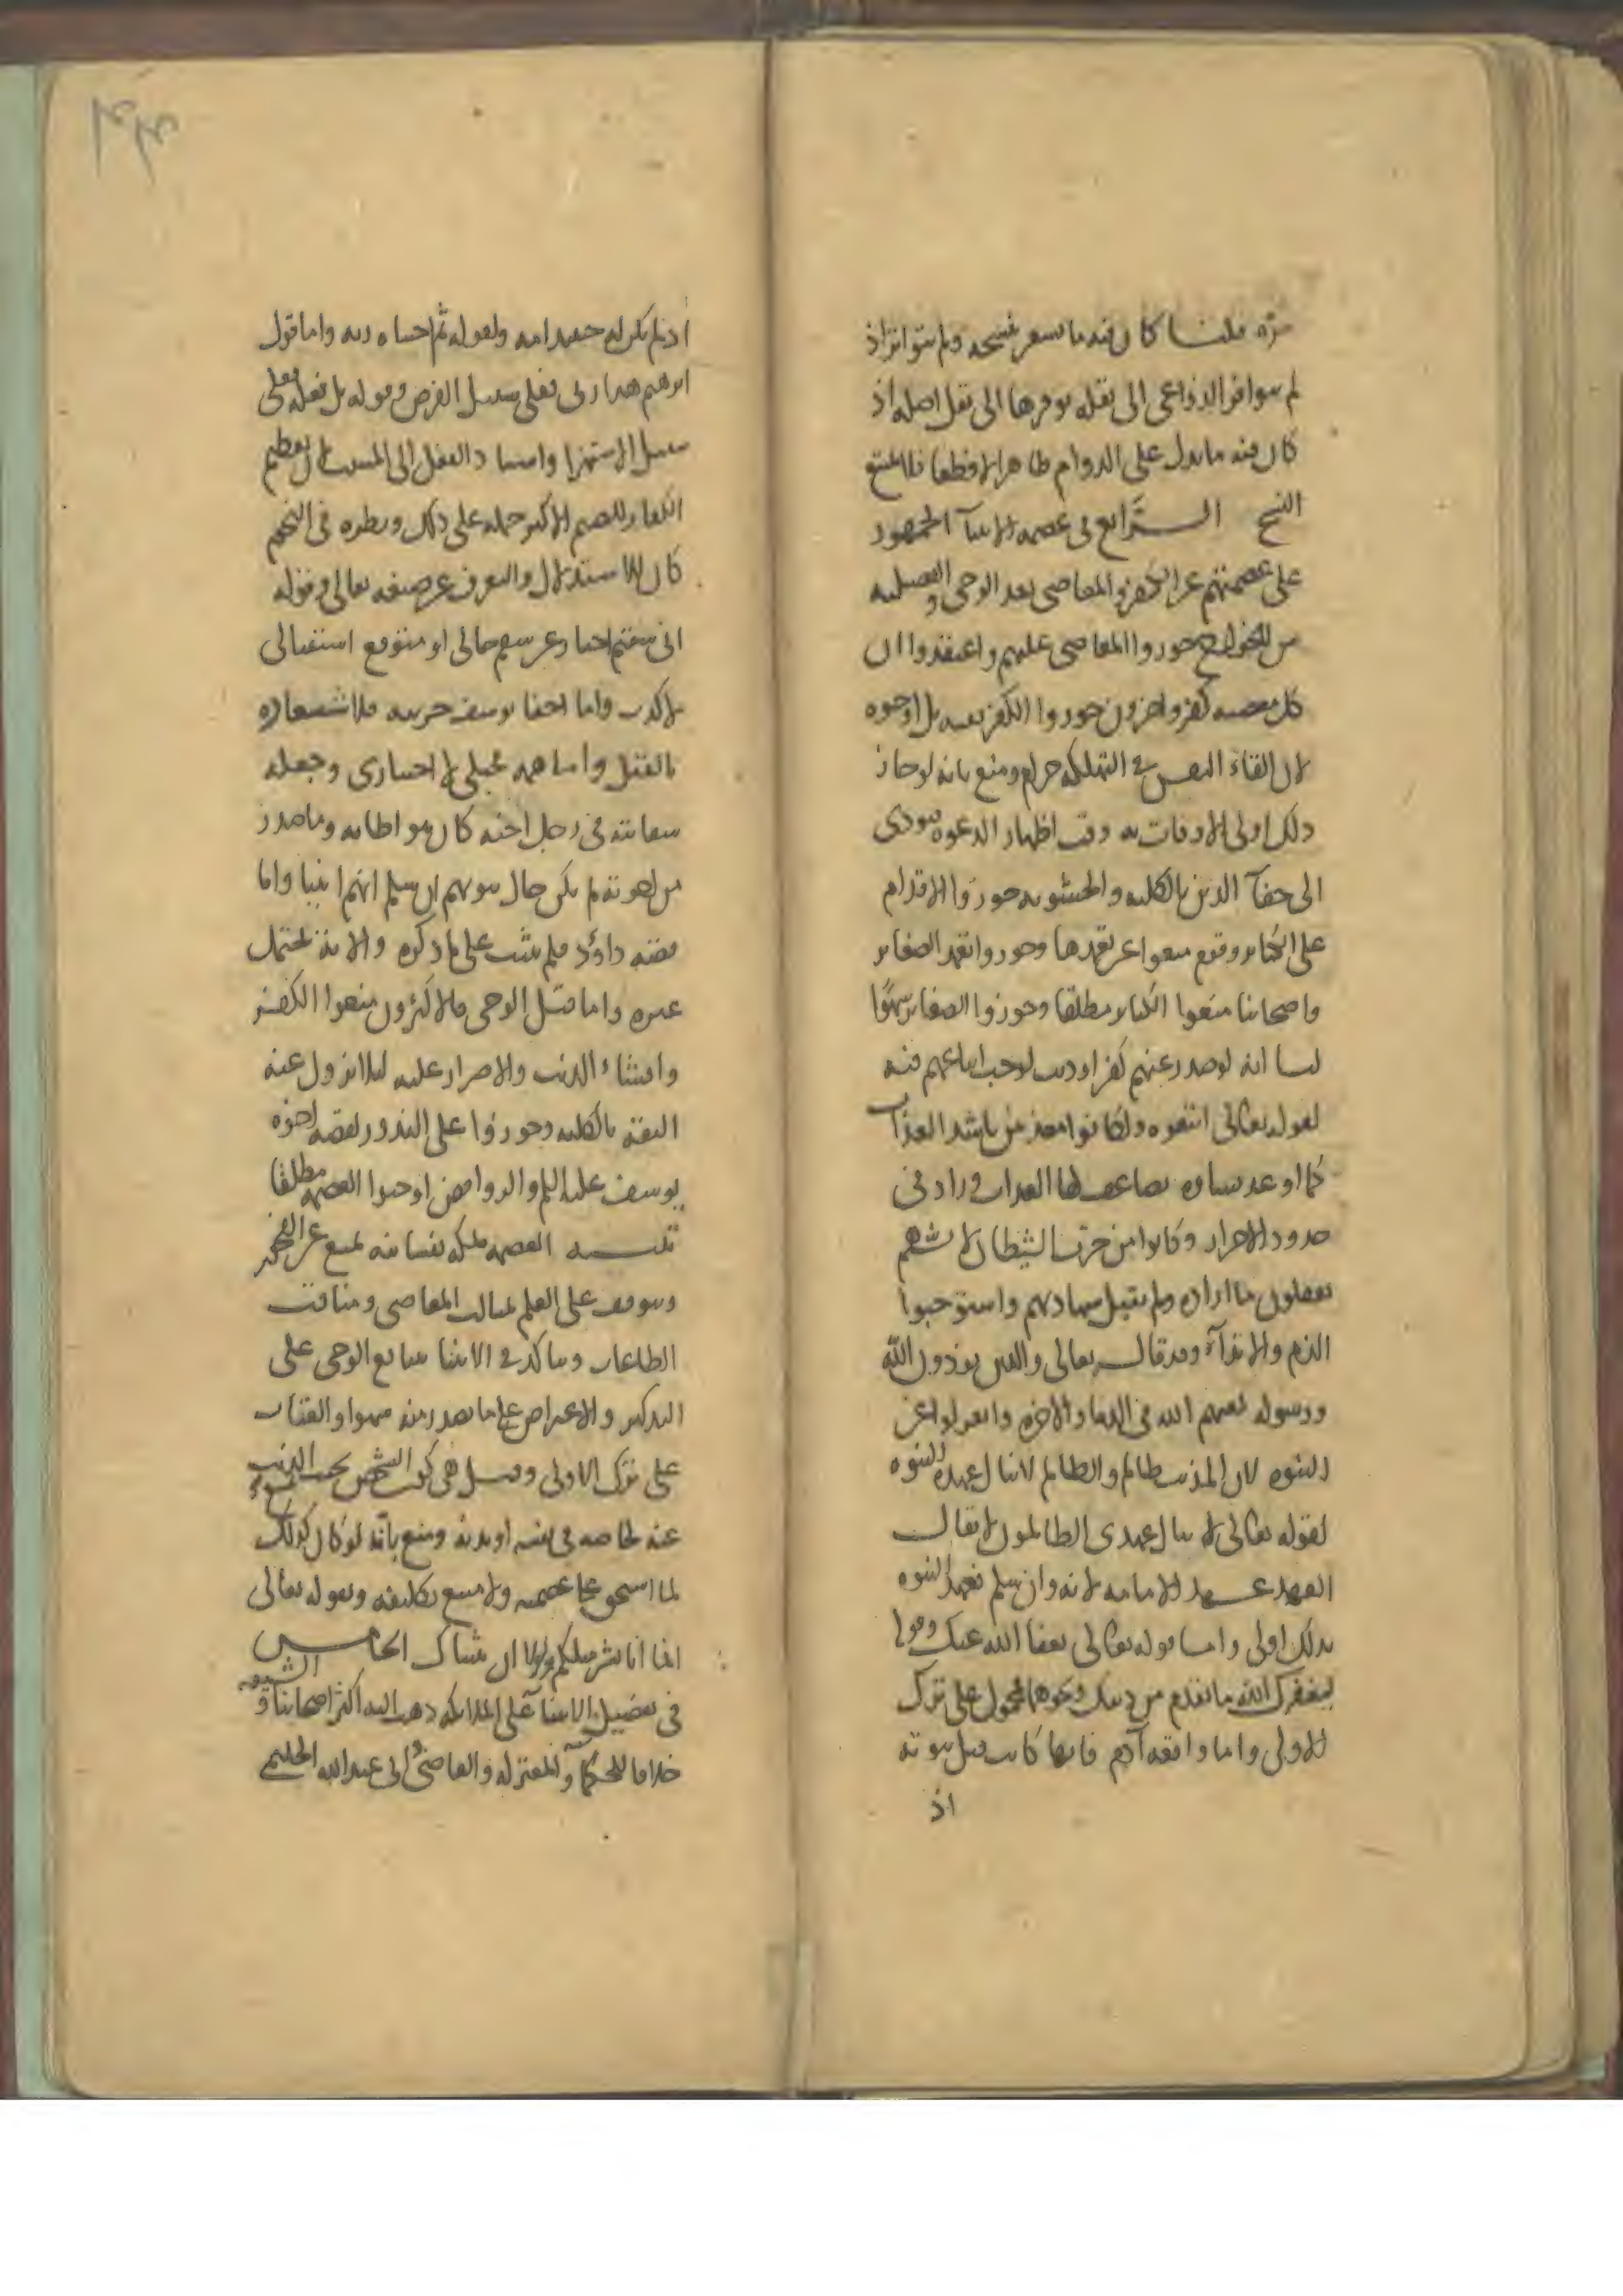 مرة قلنا كان فيه ما يشعر بنسخه ولم يتواتر اذ
لم يتوافر الدواعى الى نقله توفرها الى نقل اصله اذ
كان فيه ما يدل على الدوام ظاهرا لا قطعا فلا يمتنع
النسخ الرابع فى عصمة الانبيآ الجمهور
على عصمتهم عن الكفر والمعاصى بعد الوحى والفضيلية
من الخوارج جوزوا المعاصى عليهم واعتقدوا ان
كل معصية كفر واخرون جوزوا الكفر تقية بل اوجبوه
لان القاء النفس فى التهلكة حرام ومنع بانه لو جاز
ذلك اولى الاوقات به وقت اظهار الدعوة فيودى
الى خفآ الدين بالكلية والحشوية جوزوا الاقدام
على الكبائر وقوم منعوا عن تعمدها وجوزوا تعمد الصغائر
واصحابنا منعوا الكبائر مطلقا وجوزوا الصغائر سهوًا
لنا انه لو صدر عنهم كفر او ذنب لوجب اتباعهم فيه
لقوله تعالى اتبعوه ولكانوا معذبين باشد العذاب
كما اوعد نساءه يضاعف لها العذاب وزاد فى
حدود الاحرار وكانوا من حزب الشيطان لانهم
يفعلون ما اراده ولم يقبل شهادتهم واستوجبوا
الذم والايذآء وقد قال تعالى والذين يوذون الله
ورسوله لعنهم الله فى الدنيا والاخرة وانعزلوا عن
النبوة لان المذنب ظالم والظالم لا ينال عهده النبوة
لقوله تعالى لا ينال عهدى الظالمون لا يقال
العهد عهد الامامة لانه وان سلم فعهد النبوة
بذلك اولى واما قوله تعالى عفا الله عنك وقوله
ليغفر لك الله ما تقدم من ذنبك ونحوها محمول على ترك
الاولى واما واقعة آدم فانها كانت قبل نبوته
اذ
اذ لم يكن له حينئذ امة ولقوله ثم اجتباه ربه واما قول
ابرهيم هذا ربى فعلى سبيل الفرض وقوله بل فعله فعلى
سبيل الاستهزا واسناد الفعل الى السبب لان تعظيم
الكفار للصنم الاكبر حمله على ذلك ونظره فى النجوم
كان للاستدلال والتعرف عن صنعه تعالى وقوله
انى سقيم اخبار عن سقم حالى او متوقع استقبالى
لا كذب واما اخفا يوسف حريته فلاشعاره
بالقتل واما همه فجبلى لا اختيارى وجعله
سقايته فى رحل اخيه كان بمواطاته وما صدر
من اخوته لم يكن حال نبوتهم ان سلم انهم انبيا واما
قصة داؤد فلم يثبت على ما ذكره والآية تحتمل
غيره واما قبل الوحى فالاكثرون منعوا الكفر
وافشاء الذنب والاصرار عليه لئلا تزول عنه
الثقة بالكلية وجوزوا على الندور لقصة اخوة
يوسف عليه السلم والروافض اوجبوا العصمة مطلقا
تنبيه العصمة ملكة نفسانية تمنع عن الفجور
وتتوقف على العلم بمثالب المعاصى ومناقب
الطاعات ويتاكد فى الانبيا بتتابع الوحى على
التذكير والاعتراض على ما يصدر منه سهوا والعتاب
على ترك الاولى وقيل هى كون الشخص بحيث يمتنع الذنب
عنه لخاصة فى نفسه او بدنه ومنع بأنه لو كان كذلك
لما استحق على عصمته ولامتنع تكليفه وبقوله تعالى
انما انا بشر مثلكم ولولا ان ثبتناك الخامس
فى تفضيل الانبيآ على الملائكة ذهب اليه اكثر اصحابنا والشيعة
خلافا للحكمآ والمعتزلة والقاضى وابى عبد الله الحليمى